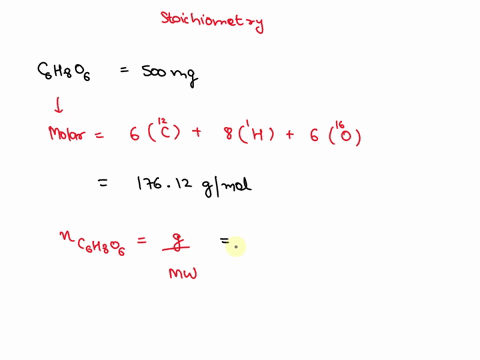 Stoichiometry
C6H8O6 = 500 mg
↓
Molar = 6 (¹²C) + 8 (¹H) + 6 (¹⁶O)
= 176.12 g/mol
n C6H8O6 = g / MW =